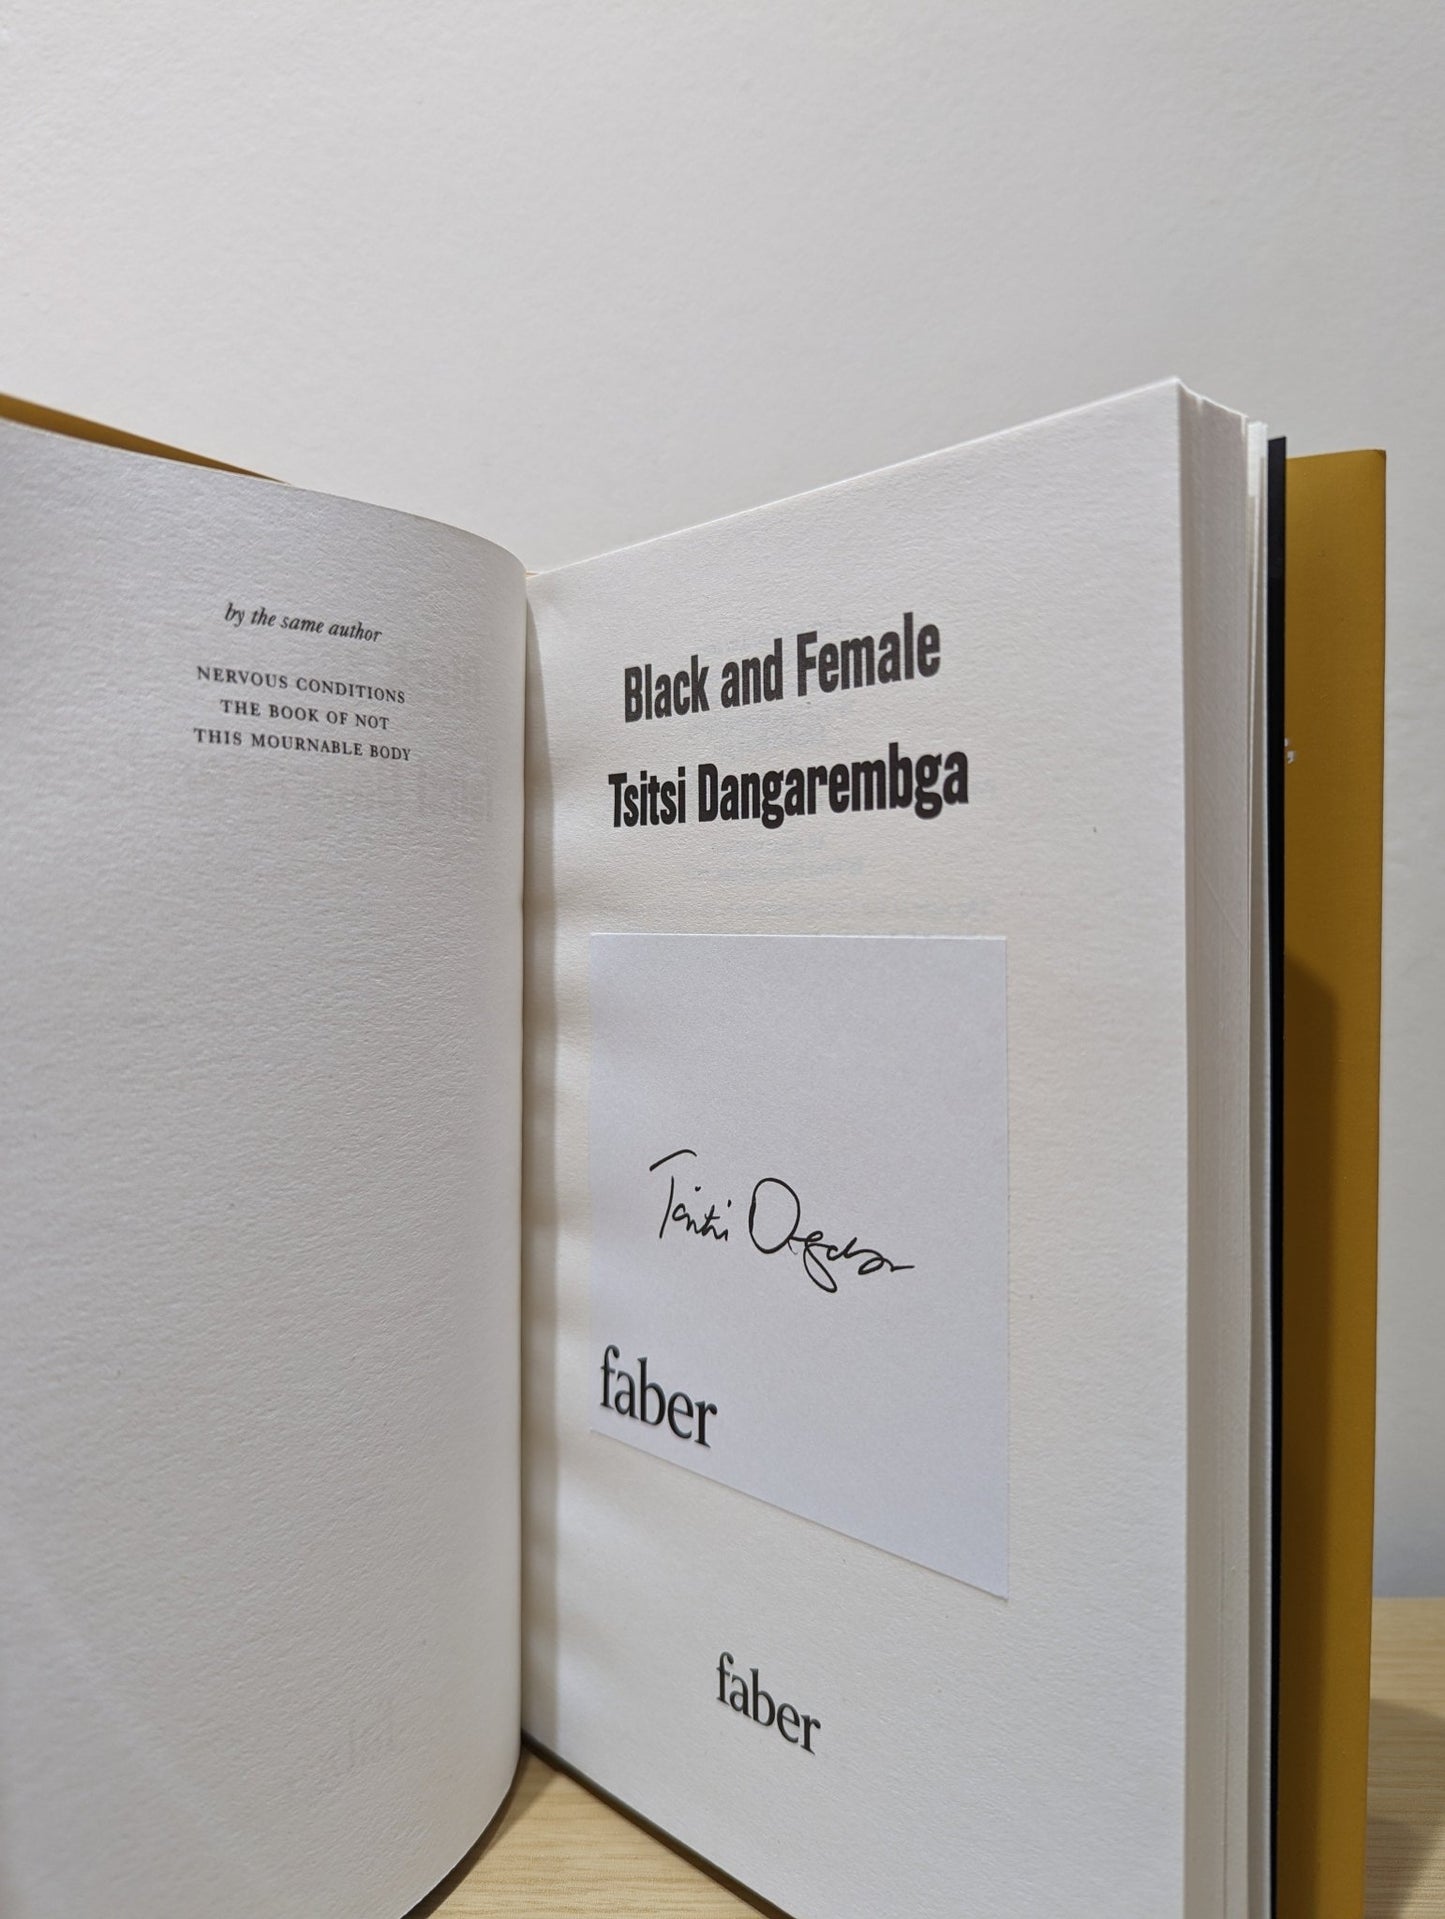 by the same author
NERVOUS CONDITIONS
THE BOOK OF NOT
THIS MOURNABLE BODY
Black and Female
Tsitsi Dangarembga
Tsitsi
faber
faber